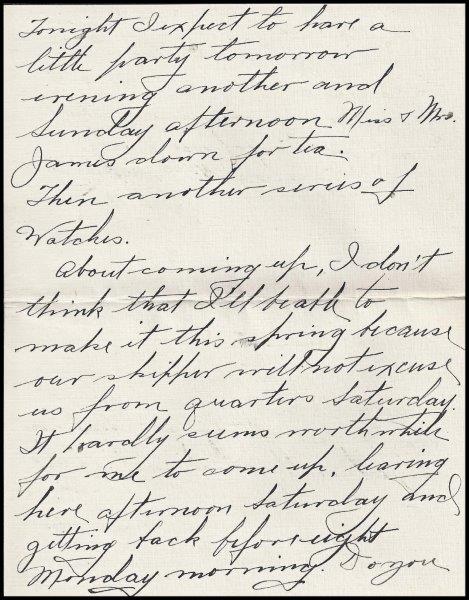 Tonight I expect to have a
little party tomorrow
evening another and
Sunday afternoon Miss & Mrs.
James down for tea.
Then another series of
Watches.
About coming up, I don't
think that I'll be able to
make it this spring because
our skipper will not excuse
us from quarters Saturday.
It hardly seems worth while
for me to come up, leaving
here afternoon Saturday and
getting back before eight
Monday morning. Do you